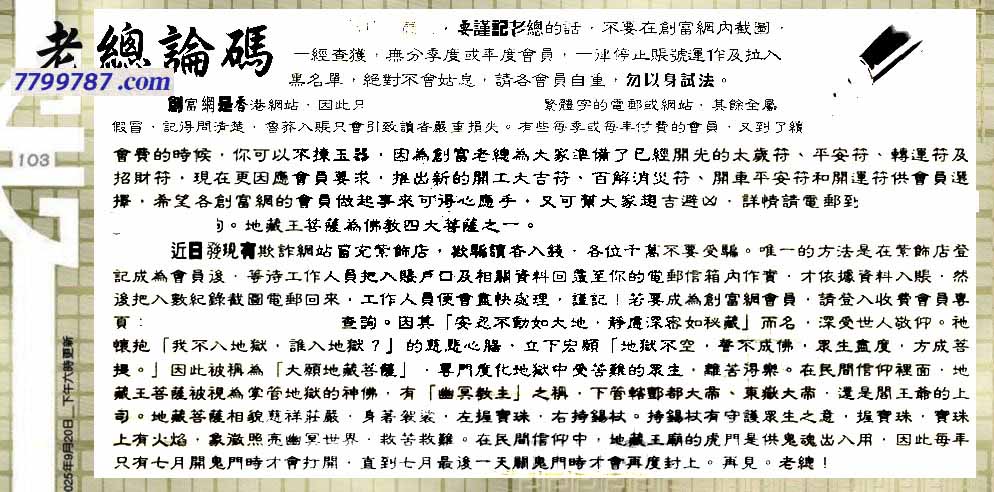 老總論碼
7799787.com
，要謹記老總的話，不要在創富網內截圖，
一經查獲，無分季度或年度會員，一津停止賬號運作及拉入
黑名單，絕對不會姑息，請各會員自重，勿以身試法。
創富網是香港網站，因此只 繁體字的電郵或網站，其餘全屬
假冒，記得問清楚，魯莽入賬只會引致讀者嚴重損失。有些每季或每年付費的會員，又到了續
會費的時候，你可以不揀玉器，因為創富老總為大家準備了已經開光的太歲符、平安符、轉運符及
招財符，現在更因應會員要求，推出新的開工大吉符、百解消災符、開車平安符和開運符供會員選
擇，希望各創富網的會員做起事來可得心應手，又可幫大家趨吉避凶，詳情請電郵到
。地藏王菩薩為佛教四大菩薩之一。
近日發現有欺詐網站冒充紫飾店，欺騙讀者入錢，各位千萬不要受騙。唯一的方法是在紫飾店登
記成為會員後，等待工作人員把入賬戶口及相關資料回覆至你的電郵信箱內作實，才依據資料入賬，然
後把入數紀錄截圖電郵回來，工作人員便會盡快處理，謹記！若要成為創富網會員，請登入收費會員專
頁： 查詢。因其「安忍不動如大地，靜慮深密如秘藏」而名，深受世人敬仰。祂
懷抱「我不入地獄，誰入地獄？」的慈悲心腸，立下宏願「地獄不空，誓不成佛，眾生盡度，方成菩
提。」因此被稱為「大願地藏菩薩」，專門度化地獄中受苦難的眾生，離苦得樂。在民間信仰裡面，地
藏王菩薩被視為掌管地獄的神佛，有「幽冥教主」之稱，下管轄酆都大帝、東嶽大帝，還是閻王爺的上
司。地藏菩薩相貌慈祥莊嚴，身著袈裟，左握寶珠，右持錫杖。持錫杖有守護眾生之意，握寶珠，寶珠
上有火焰，象徵照亮幽冥世界，救苦救難。在民間信仰中，地藏王廟的虎門是供鬼魂出入用，因此每年
只有七月開鬼門時才會打開，直到七月最後一天關鬼門時才會再度封上。再見。老總！
103
025年9月20日__下午六時更新